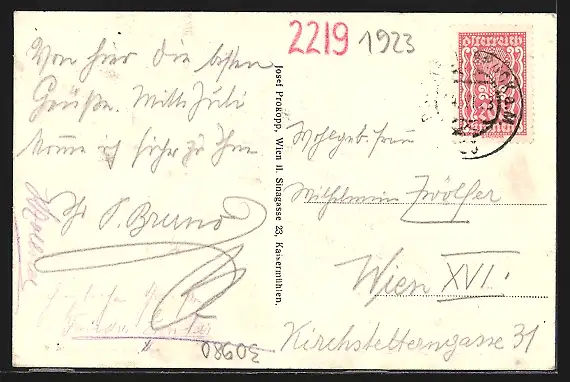 2219 1923
österreich
Von hier die besten
Grüße. Mitte Juli
komme ich sicher zu Ihnen
P. Bruno
30980
Josef Prokopp, Wien II. Sinagasse 23, Kaisermühlen.
Wohlgeb. Frau
Wilhelmine Zwölfer
Wien XVI.
Kirchstetterngasse 31